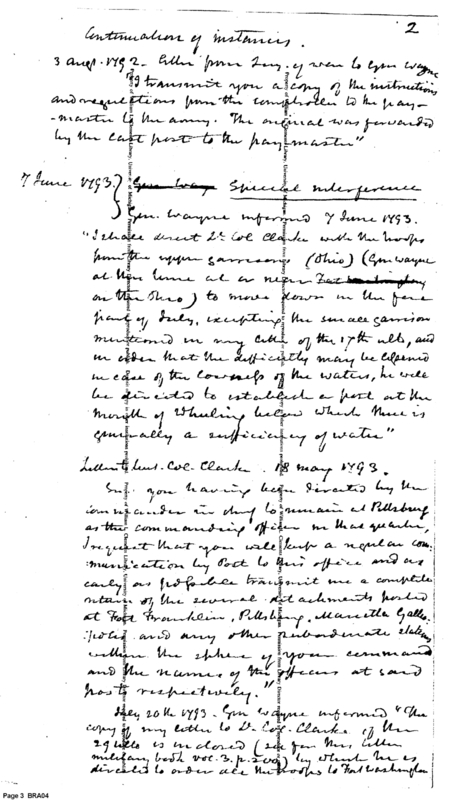 2
Continuation of instances.
3 Augt. 1792. Letter from Secy. of war to Genl Wayne
"I transmit you a copy of the instructions
and regulations from the comptroller to the pay-
-master to the army. The original was forwarded
by the last post to the pay-master"
7 June 1793. } Genl Way Special interference
Genl. Wayne informed 7 June 1793.
"I shall direct Lt Col Clarke with the troops
from the upper garrisons (Ohio) (Gen Wayne
at this time at or near Fort Washington
on the Ohio) to move down in the fore
part of July, excepting the small garrison
mentioned in my letter of the 17th ulto, and
in order that the difficulty may be lessened
in case of the lowness of the waters, he will
be directed to establish a post at the
mouth of Wheeling below which there is
generally a sufficiency of water"
Letter to Lieut. Col. Clarke. 18 May 1793.
Sir. you having been directed by the
commander in chief to remain at Pittsburg
as the commanding officer in that quarter,
I request that you will keep a regular com-
munication by Post to this office and as
early as possible transmit me a complete
return of the several detachments posted
at Fort Franklin, Pittsburg, Marietta Gallio-
polis and any other subordinate stations
within the sphere of your command
and the names of the officers at said
posts respectively."
July 20th 1793. Genl Wayne informed "The
copy of my letter to Lt Col. Clarke of the
29 ulto is inclosed (see for this letter
military book vol. 3. p. 200) by which he is
directed to order all the troops to Fort Washington
Page 3 BRA04